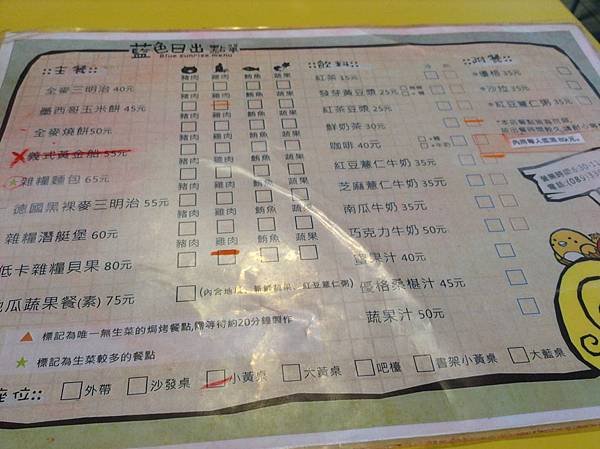 藍色日出 點單
Blue sunrise menu
::主餐::
豬肉 雞肉 鮪魚 蔬果
全麥三明治 40元
豬肉 雞肉 鮪魚 蔬果
墨西哥玉米餅 45元
豬肉 雞肉 鮪魚 蔬果
全麥燒餅50元
豬肉 雞肉 鮪魚 蔬果
義式黃金船 55元
豬肉 雞肉 鮪魚 蔬果
雜糧麵包 65元
豬肉 雞肉 鮪魚 蔬果
德國黑裸麥三明治 55元
豬肉 雞肉 鮪魚 蔬果
雜糧潛艇堡 60元
豬肉 雞肉 鮪魚 蔬果
低卡雜糧貝果 80元
地瓜蔬果餐(素) 75元
標記為唯一無生菜的焗烤餐點,需等待約20分鐘製作
標記為生菜較多的餐點
::飲料::
紅茶 15元
發芽黃豆漿 25元
紅茶豆漿 25元
鮮奶茶 30元
咖啡 40元
紅豆薏仁牛奶 35元
芝麻薏仁牛奶 35元
南瓜牛奶 35元
巧克力牛奶 50元
蜜果汁 40元
優格桑椹汁 45元
蔬果汁 50元
優格 35元
沙拉 35元
紅豆薏仁粥 35元
座位::
外帶 沙發桌 小黃桌 大黃桌 吧檯 書架小黃桌 大籃桌